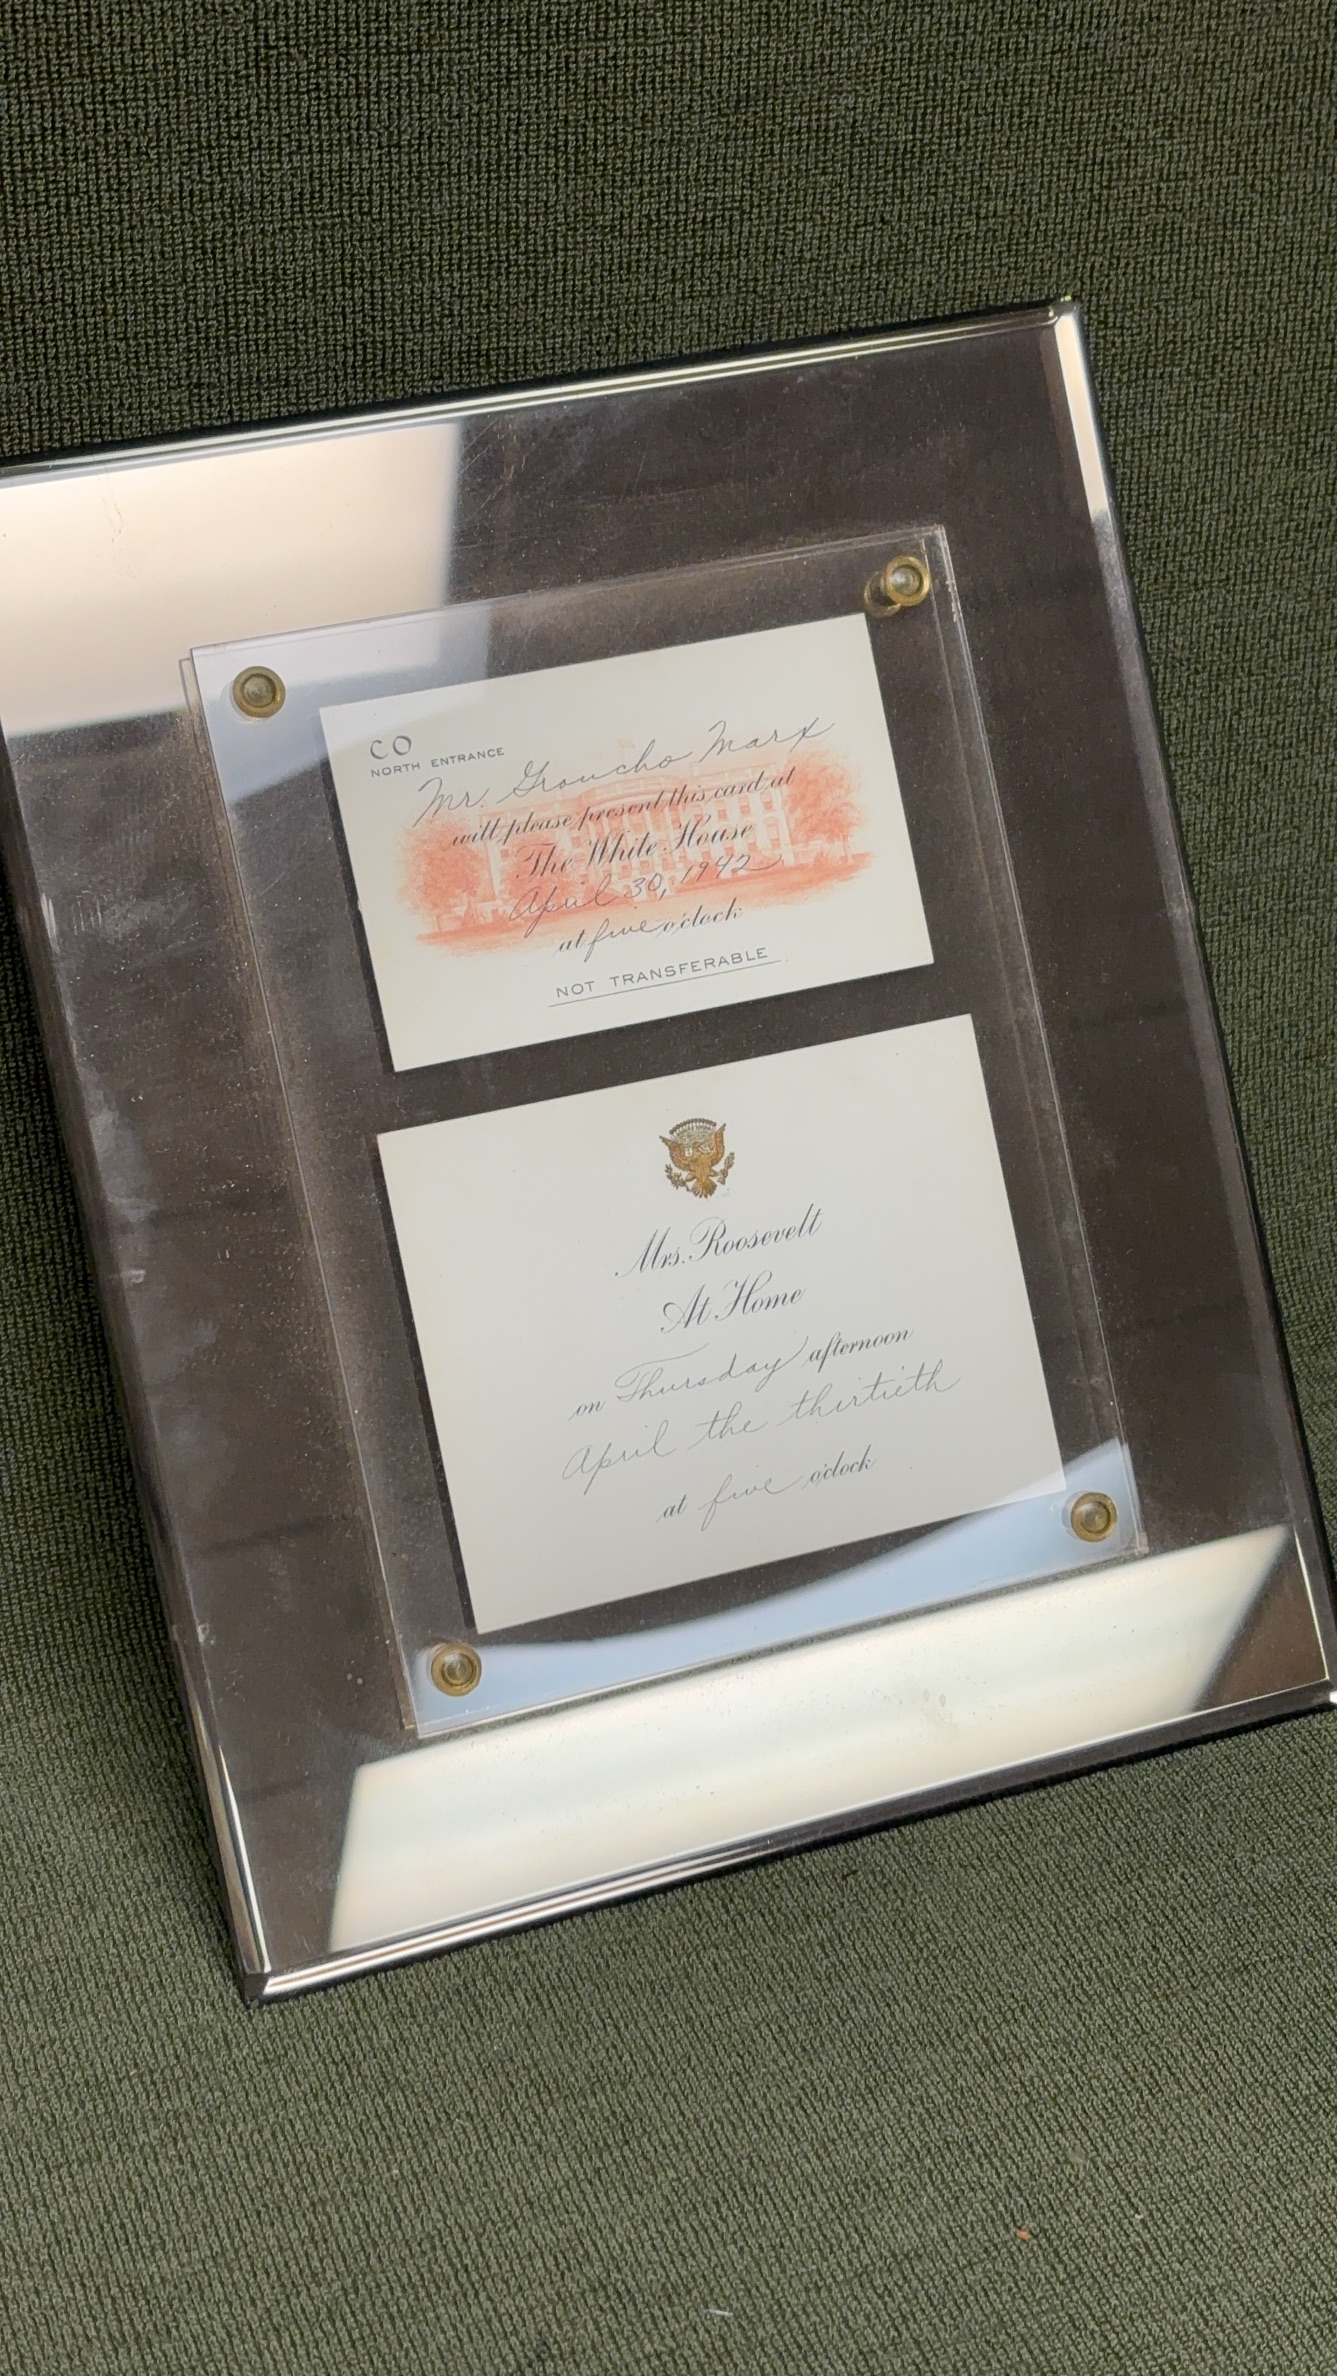 CO
NORTH ENTRANCE
Mr. Groucho Marx
will please present this card at
The White House
April 30, 1942
at five o'clock
NOT TRANSFERABLE
Mrs. Roosevelt
At Home
on Thursday afternoon
April the thirtieth
at five o'clock